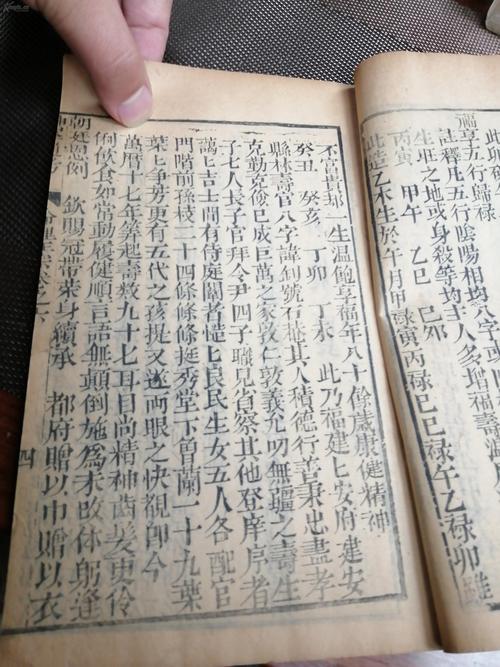 福享五行歸祿
註釋凡五行陰陽相均
生旺之地或身殺等均主人多增福壽
丙寅 甲午 乙巳 己卯
此造乙木生於午月甲祿寅丙祿巳己祿午乙祿卯雖
不富貴却一生溫飽享福年八十餘歲康健精神
癸丑 癸亥 丁卯 丁未 此乃福建匕安府建安
縣林壽官八字諱釗號石菴其人積德行善秉忠盡孝
克勤克儉已成巨萬之家敦仁敦義允叨無疆之壽生
子七人長子官拜令尹四子職見省祭其他登庠序者
藹匕吉士間有侍庭闈者愷匕良民生女五人各配官
門階前孫枝二十四條條條挺秀堂下角蘭二十九葉
葉匕爭芳更有五代之孩提又遂兩眼之快觀卽今
萬曆十七年筭起壽數九十七耳目尚精神齒髮更伶
俐飲食如常動履健順言語無顛倒施爲未改体躬逢
朝廷恩例 欽賜冠帶榮身續承 都府贈以巾贈以衣
四